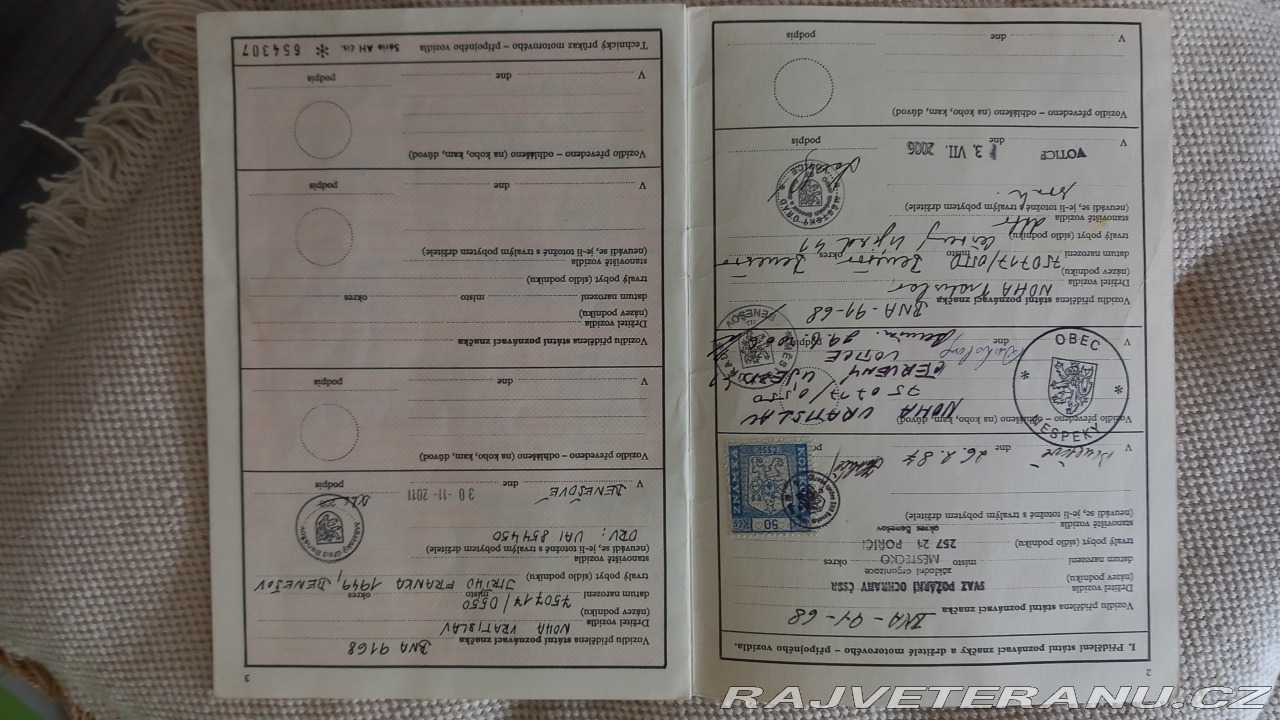 2
I. Přidělení státní poznávací značky a držitelé motorového – přípojného vozidla.
Vozidlu přidělena státní poznávací značka BNA - 91-68
Držitel vozidla
(název) SVAZ POŽÁRNÍ OCHRANY ČSSR
(podniku) základní organizace
datum narození místo MĚSTEČKO okres
trvalý pobyt (sídlo) podniku) 257 21 POŘÍČÍ
stanoviště vozidla okres Benešov
(neuvádí se, je-li totožné s trvalým pobytem držitele)
50 Kčs
KOLKOVÁ
ZNÁMKA
ČSSR
V dne 26. 2. 87
podpis
Vozidlo převedeno – odhlášeno (na koho, kam, důvod)
NOHA VRATISLAV
750717/0550
ČERVENÝ ÚJEZD
VOTICE
OBEC
NESPEKY
V dne podpis
MĚSTSKÝ ÚŘAD
BENEŠOV
Vozidlu přidělena státní poznávací značka BNA - 91-68
Držitel vozidla NOHA Vratislav
(název)
(podniku)
datum narození 750717/0550 místo Benešov okres Benešov
trvalý pobyt (sídlo) podniku) Červený Újezd 41
stanoviště vozidla dtto
(neuvádí se, je-li totožné s trvalým pobytem držitele)
MĚSTSKÝ ÚŘAD
VOTICE
V VOTICE dne 13. VII. 2006 podpis
Vozidlo převedeno – odhlášeno (na koho, kam, důvod)
V dne podpis
3
Vozidlu přidělena státní poznávací značka BNA 9168
Držitel vozidla NOHA VRATISLAV
(název)
(podniku)
datum narození 750717/0550 místo okres
trvalý pobyt (sídlo) podniku) JIŘÍHO FRANKA 1949, BENEŠOV
stanoviště vozidla
(neuvádí se, je-li totožné s trvalým pobytem držitele)
DRV: UAI 854450
Městský úřad Benešov
V BENEŠOVĚ dne 30 -11- 2011 podpis
Vozidlo převedeno – odhlášeno (na koho, kam, důvod)
V dne podpis
Vozidlu přidělena státní poznávací značka
Držitel vozidla
(název)
(podniku)
datum narození místo okres
trvalý pobyt (sídlo) podniku)
stanoviště vozidla
(neuvádí se, je-li totožné s trvalým pobytem držitele)
V dne podpis
Vozidlo převedeno – odhlášeno (na koho, kam, důvod)
V dne podpis
Technický průkaz motorového – přípojného vozidla Série AH čís. * 654307
RAJVETERANU.CZ